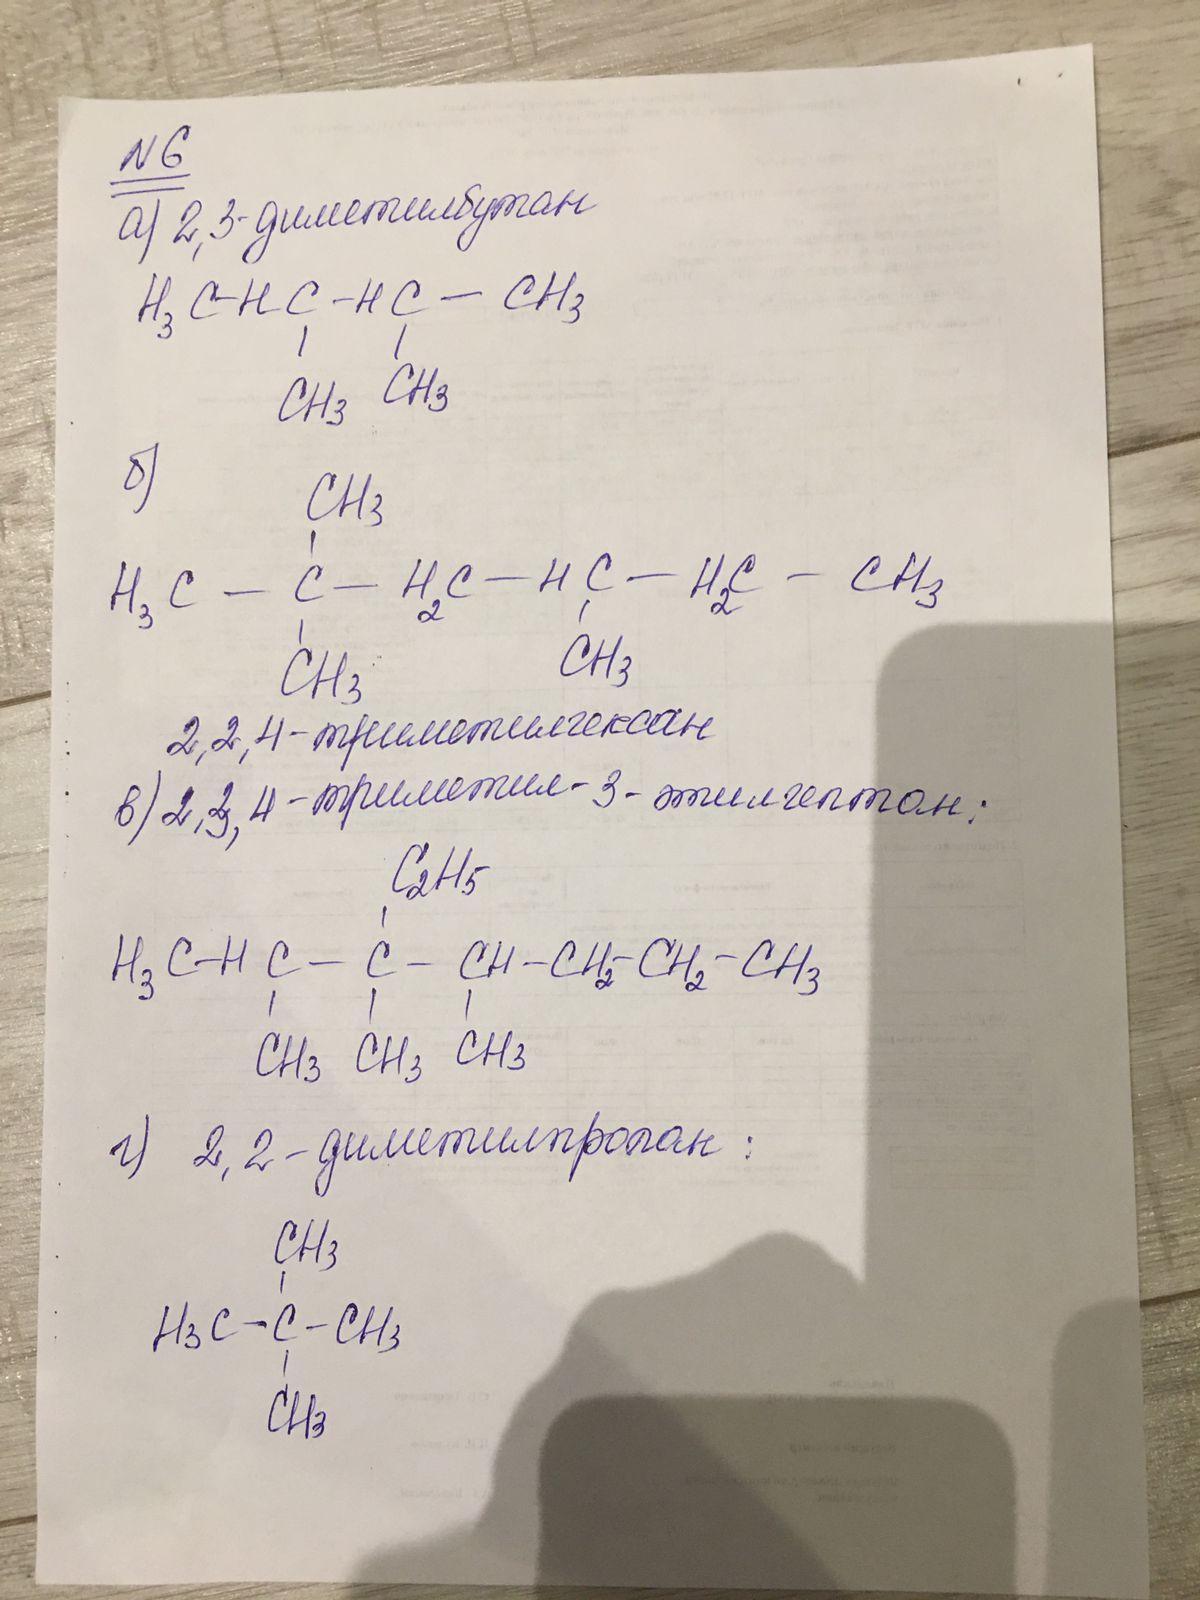 N 6
а) 2,3-диметилбутан
H3C-HC-HC-CH3
CH3 CH3
б)
CH3
H3C-C-H2C-HC-H2C-CH3
CH3 CH3
2,2,4-триметилгексан
в) 2,3,4-триметил-3-этилгептан:
C2H5
H3C-HC-C-CH-CH2-CH2-CH3
CH3 CH3 CH3
г) 2,2-диметилпропан:
CH3
H3C-C-CH3
CH3